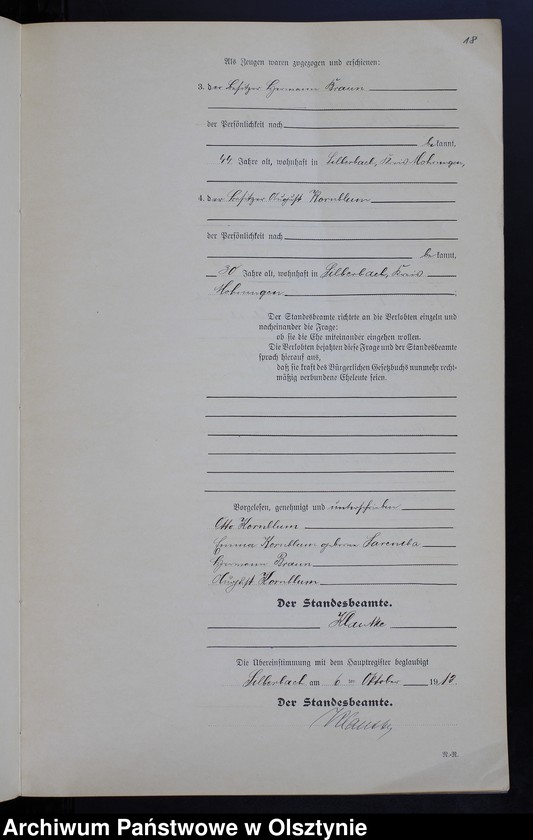 18
Als Zeugen waren zugezogen und erschienen:
3. der Besitzer Hermann Braun
der Persönlichkeit nach
bekannt,
44 Jahre alt, wohnhaft in Silberbach, Kreis Mohrungen,
4. der Besitzer August Kornblum
der Persönlichkeit nach
bekannt,
30 Jahre alt, wohnhaft in Silberbach, Kreis
Mohrungen
Der Standesbeamte richtete an die Verlobten einzeln und
nacheinander die Frage:
ob sie die Ehe miteinander eingehen wollen.
Die Verlobten bejahten diese Frage und der Standesbeamte
sprach hierauf aus,
daß sie kraft des Bürgerlichen Gesetzbuchs nunmehr recht-
mäßig verbundene Eheleute seien.
Vorgelesen, genehmigt und unterschrieben
Otto Kornblum
Emma Kornblum geborene
Hermann Braun
August Kornblum
Der Standesbeamte.
Die Übereinstimmung mit dem Hauptregister beglaubigt
Silberbach am 6 ten Oktober 1912
Der Standesbeamte.
R.-R.
Archiwum Państwowe w Olsztynie